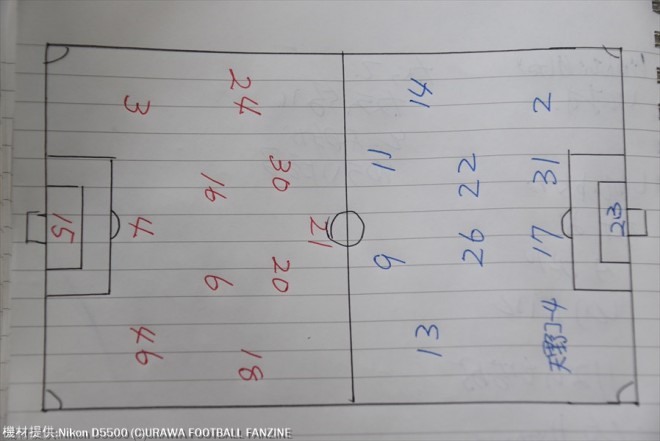 24
3
30
16
4
15
21
20
6
46
18
14
2
11
22
31
23
26
17
9
13
4
機材提供:Nikon D5500 (C)URAWA FOOTBALL FANZINE